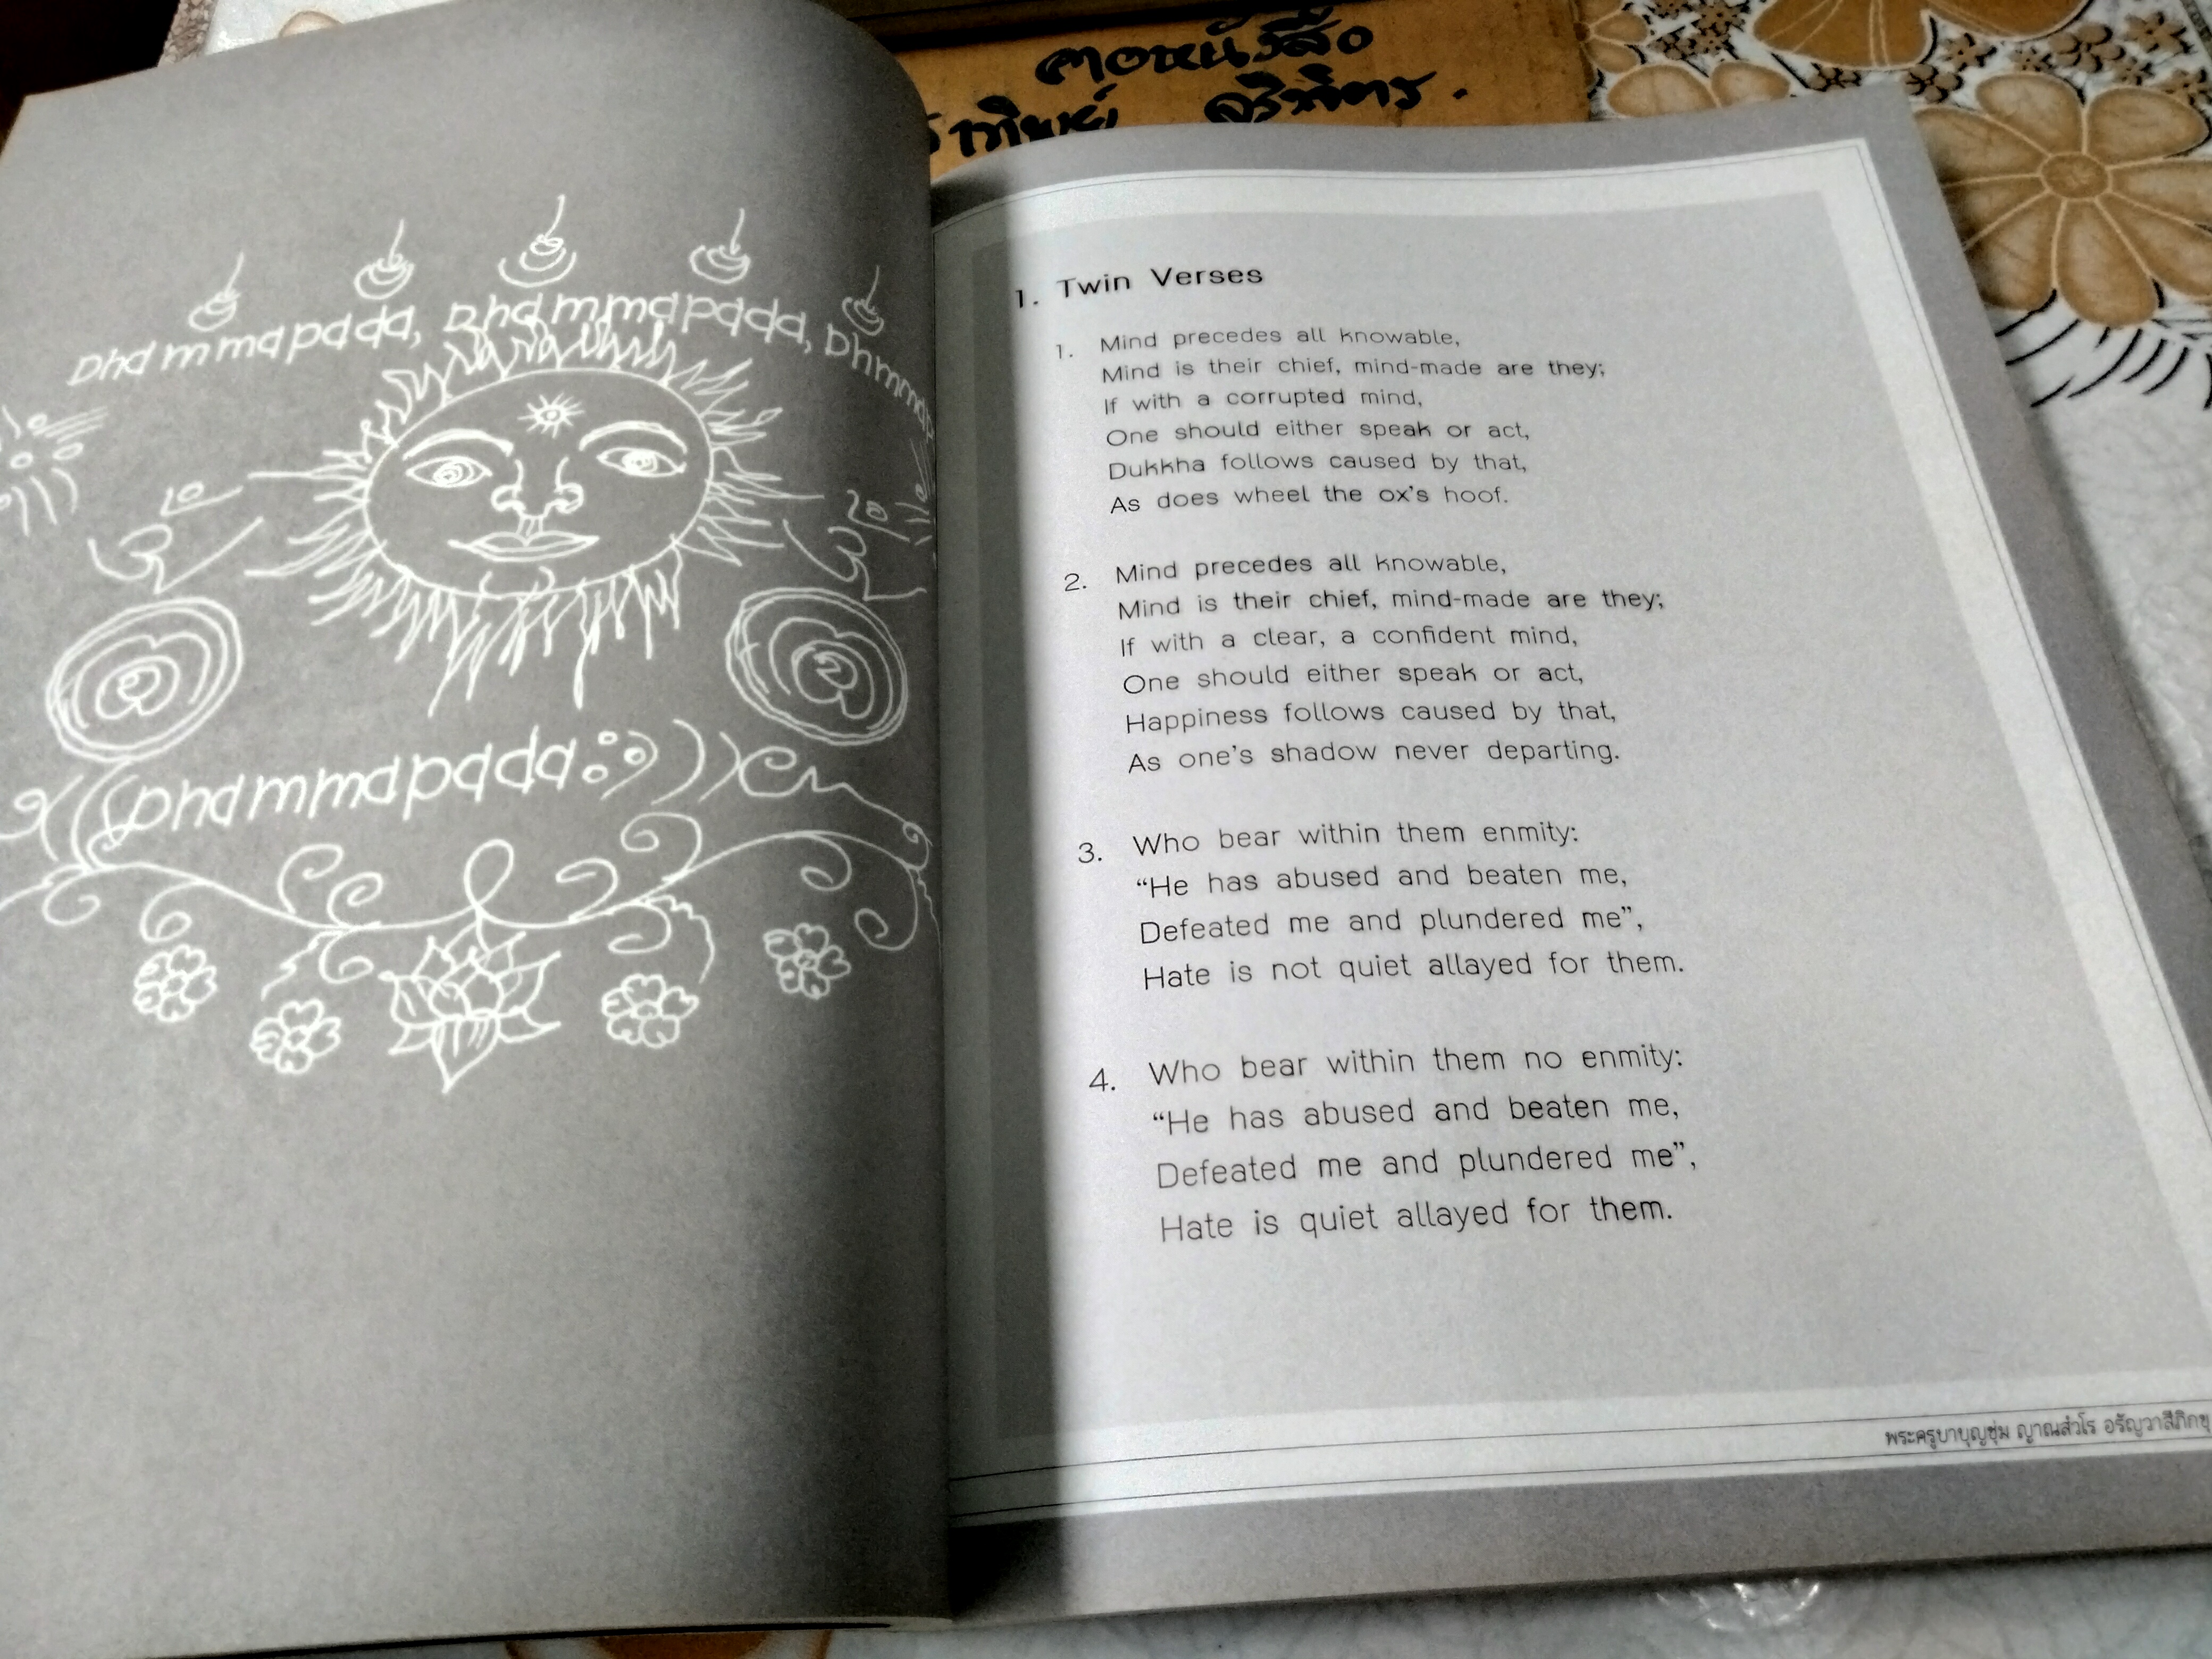 คอหนังสือ
Dhammapada, Dhammapada, Dhmmapa
Dhammapada
1. Twin Verses
1. Mind precedes all knowable,
Mind is their chief, mind-made are they;
If with a corrupted mind,
One should either speak or act,
Dukkha follows caused by that,
As does wheel the ox's hoof.
2. Mind precedes all knowable,
Mind is their chief, mind-made are they;
If with a clear, a confident mind,
One should either speak or act,
Happiness follows caused by that,
As one's shadow never departing.
3. Who bear within them enmity:
“He has abused and beaten me,
Defeated me and plundered me”,
Hate is not quiet allayed for them.
4. Who bear within them no enmity:
“He has abused and beaten me,
Defeated me and plundered me”,
Hate is quiet allayed for them.
พระครูบาบุญชุ่ม ญาณสํวโร อรัญวาสีภิกขุ